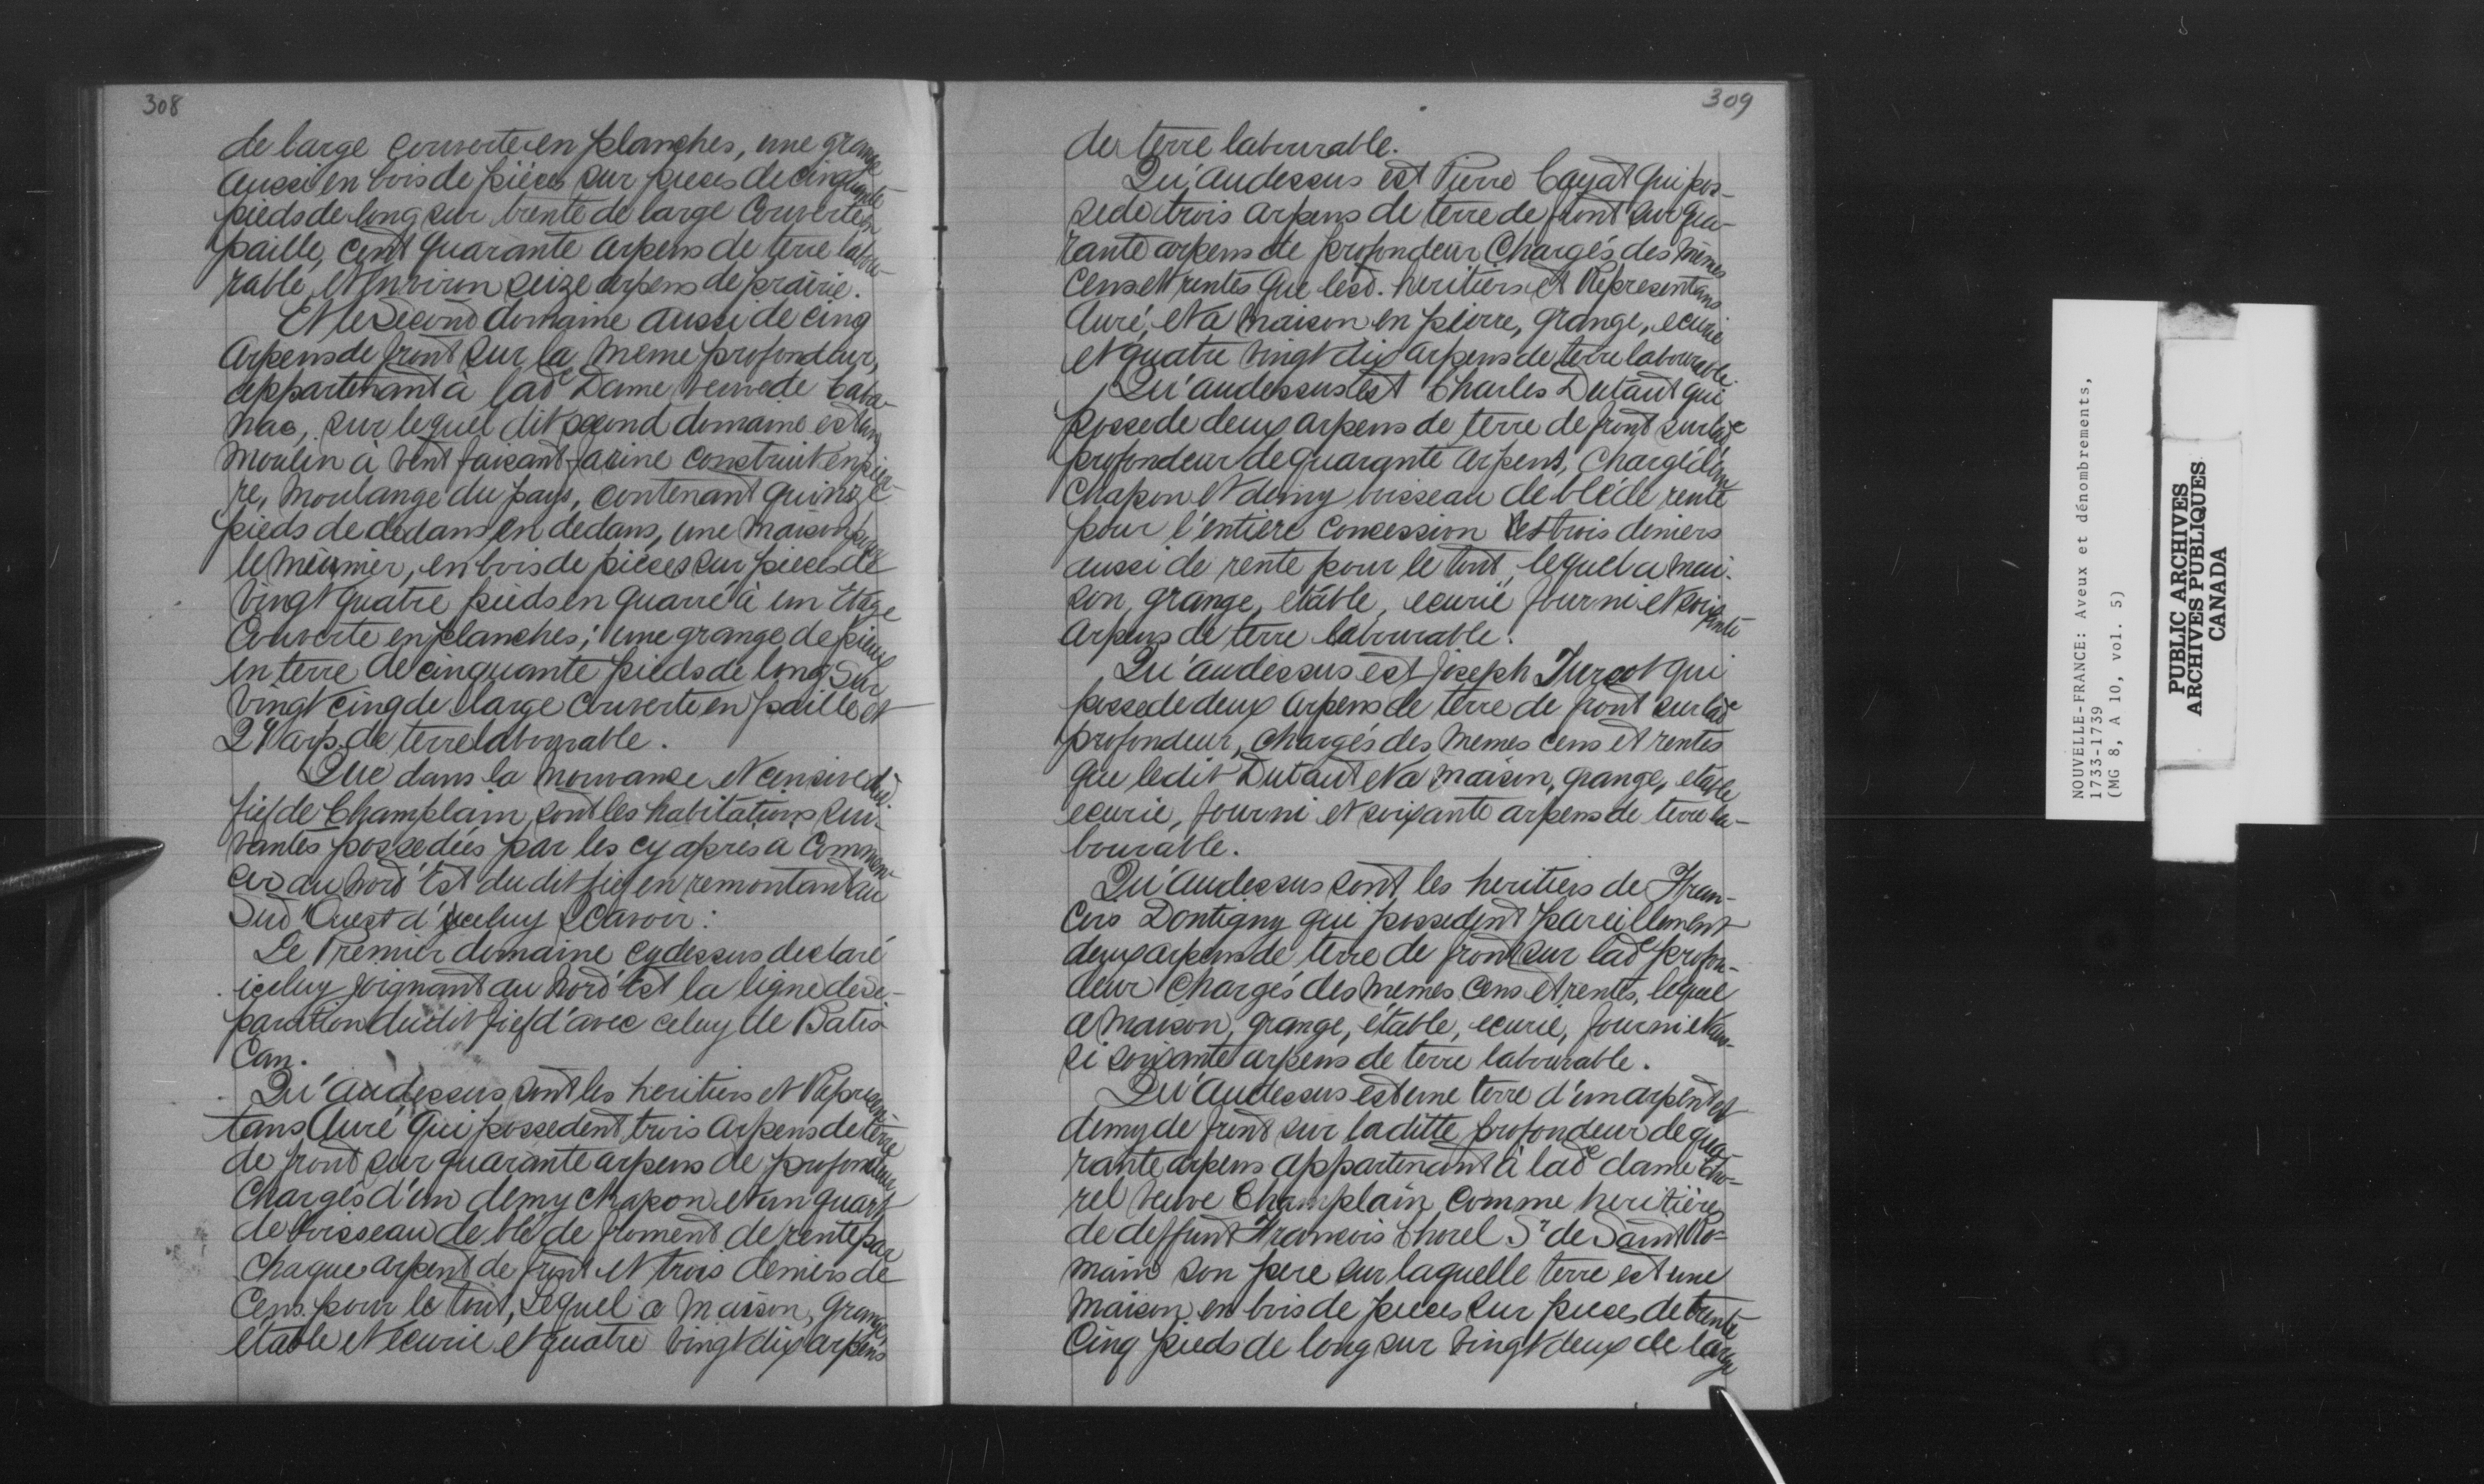 308
de large couverte en planches, une grange
aussi en bois de pièces sur pieces de cinquante
pieds de long sur trente de large Couverte en
paille, cent quarante arpens de terre labou-
rable et environ seize arpens de prairie.
Et le Second domaine aussi de cinq
Arpens de front sur la meme profondeur,
appartenant à lade Dame veuve de Caba-
nac, sur lequel dit second domaine est un
Moulin à vent faisant farine construit en pier-
re, moulange du pays, contenant quinze
pieds de dedans en dedans, une maison pour
le meunier, en bois de pieces sur pieces de
vingt quatre pieds en quarré à un Etage
Couverte en planches; une grange de pieux
en terre de cinquante pieds de long sur
vingt cinq de large couverte en paille et
24 arp. de terre labourable.
Que dans la mouvance et censive dud.
fief de Champlain sont les habitations sui-
vantes possedées par les cy après à Commen-
cer au Nord Est du dit fief en remontant au
Sud Ouest d'iceluy Scavoir:
Le Premier domaine cydessus declaré
iceluy joignant au Nord Est la ligne de sé-
paration dudit fief d'avec celuy de Batis
Can.
Qu'audessus sont les heritiers et Represen-
tans Curé qui possedent trois arpens de terre
de front sur quarante arpens de profondeur
Chargés d'un demy chapon et un quart
de boisseau de blé de froment de rente par
Chaque arpent de front et trois deniers de
Cens pour le tout, Lequel a maison, grange,
étable et écurie et quatre vingt dix arpens
309
de terre labourable.
Qu'audessus est Pierre Cayat qui pos-
sede trois arpens de terre de front sur qua-
rante arpens de profondeur Chargés des mêmes
Cens et rentes que lesd. heritiers et Representans
Curé, et a maison en pierre, grange, ecurie
et quatre vingt dix arpens de terre labourable.
Qu'audessus est Charles Dutaut qui
possede deux arpens de terre de front sur lade
profondeur de quarante arpens, Chargé d'un
Chapon et demy boisseau de blé de rente
pour l'entiere concession et trois deniers
aussi de rente pour le tout, lequel a mai-
son, grange, étable, ecurie fourni et soixante
Arpens de terre labourable.
Qu'audessus est Joseph Turcot qui
possede deux arpens de terre de front sur lade
profondeur, chargés des memes cens et rentes
que ledit Dutaut et a maison, grange, etable
ecurie, fourni et soixante arpens de terre la-
bourable.
Qu'audessus sont les heritiers de Fran-
cois Dontigny qui possedent pareillement
deux arpens de terre de front sur lade profon-
deur Chargés des memes cens et rentes, lequel
a maison, grange, étable, ecurie, fourni et aus-
si soixante arpens de terre labourable.
Qu'audessus est une terre d'un arpent et
demy de front sur laditte profondeur de qua-
rante arpens appartenant à lade dame Cho-
rel veuve Champlain comme heritière
de deffunt Francois Chorel Sr de Saint Ro-
main son pere sur laquelle terre est une
Maison en bois de pieces sur pieces de trente
Cinq pieds de long sur vingt deux de large
NOUVELLE-FRANCE: Aveux et dénombrements,
1733-1739
(MG 8, A 10, vol. 5)
PUBLIC ARCHIVES
ARCHIVES PUBLIQUES
CANADA